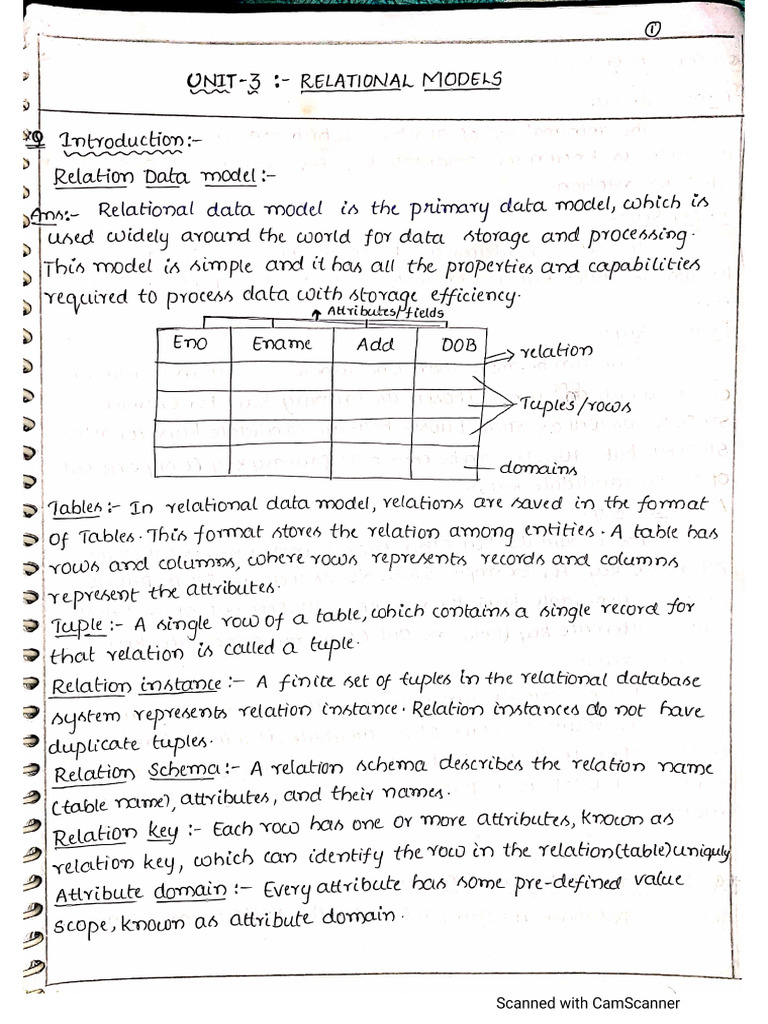 1
UNIT-3 :- RELATIONAL MODELS
Q Introduction:-
Relation Data model:-
Ans:- Relational data model is the primary data model, which is
used widely around the world for data storage and processing.
This model is simple and it has all the properties and capabilities
required to process data with storage efficiency.
Attributes/fields
Eno Ename Add DOB
relation
Tuples/rows
domains
Tables:- In relational data model, relations are saved in the format
of Tables. This format stores the relation among entities. A table has
rows and columns, where rows represents records and columns
represent the attributes.
Tuple:- A single row of a table, which contains a single record for
that relation is called a tuple.
Relation instance:- A finite set of tuples in the relational database
system represents relation instance. Relation instances do not have
duplicate tuples.
Relation Schema:- A relation schema describes the relation name
(table name), attributes, and their names.
Relation key:- Each row has one or more attributes, known as
relation key, which can identify the row in the relation(table) uniquly
Attribute domain:- Every attribute has some pre-defined value
scope, known as attribute domain.
Scanned with CamScanner